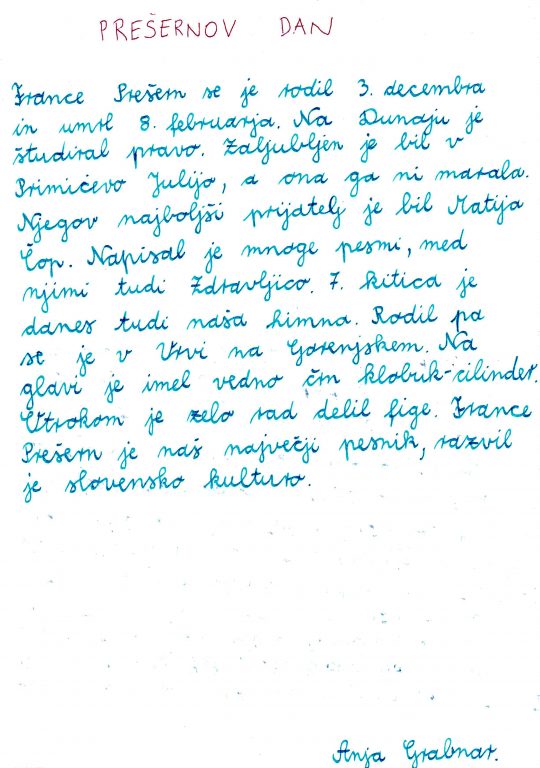 PREŠERNOV DAN
France Prešern se je rodil 3. decembra
in umrl 8. februarja. Na Dunaju je
študiral pravo. Zaljubljen je bil v
Primičevo Julijo, a ona ga ni marala.
Njegov najboljši prijatelj je bil Matija
Čop. Napisal je mnoge pesmi, med
njimi tudi Zdravljico. 7. kitica je
danes tudi naša himna. Rodil pa
se je v Vrvi na Gorenjskem. Na
glavi je imel vedno črn klobuk-cilinder.
Otrokom je zelo rad delil fige. France
Prešern je naš največji pesnik, razvil
je slovensko kulturo.
Anja Grabnar.